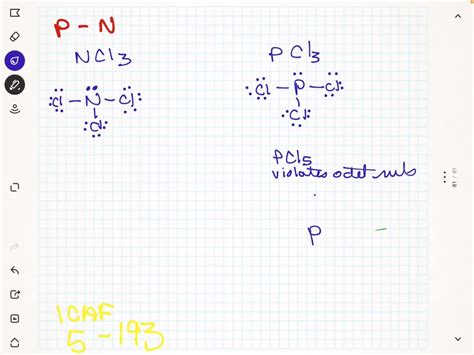 P - N
NCl3
PCl3
:Cl - N - Cl:
Cl:
:Cl - P - Cl:
:Cl:
PCl5
violates octet rule
P
1CAF
5-193
18 / 18